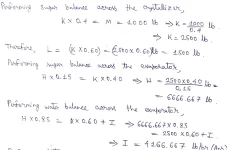 Performing sugar balance across the crystallizer,
K × 0.4 = M = 1000 lb → K = 1000 / 0.4
→ K = 2500 lb.
Therefore, L = (K × 0.60) = (2500 × 0.60) lb = 1500 lb.
Performing sugar balance across the evaporator,
H × 0.15 = K × 0.40 → H = 2500 × 0.40 lb / 0.15
= 6666.667 lb.
Performing water balance across the evaporator,
H × 0.85 = K × 0.60 + I → 6666.667 × 0.85
= 2500 × 0.60 + I.
→ I = 4166.667 lb